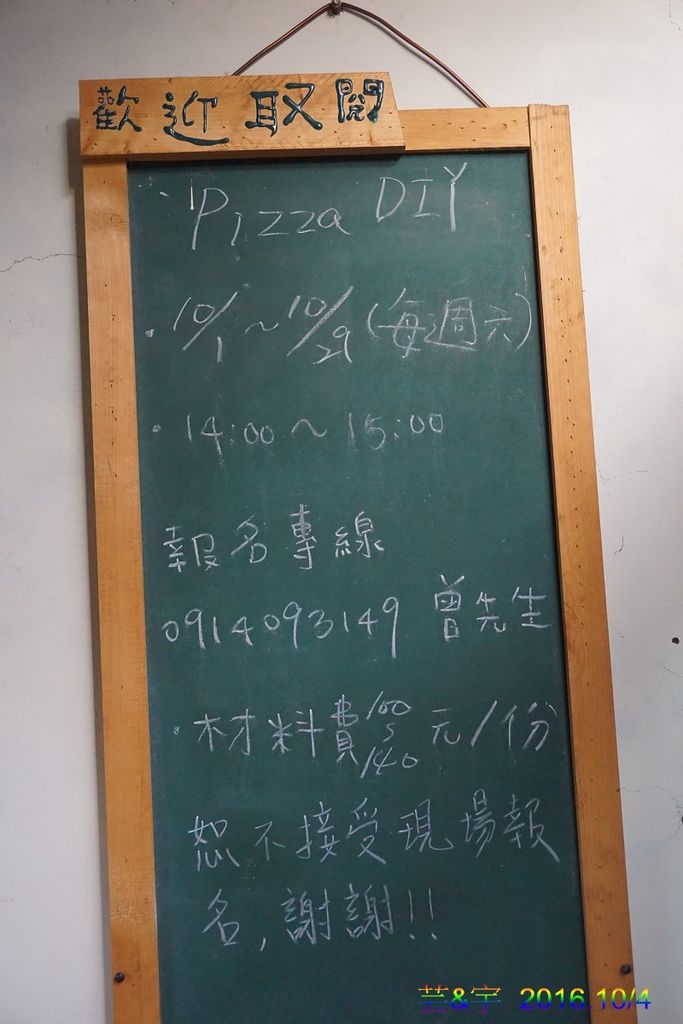 歡迎取閱
· Pizza DIY
· 10/1～10/29 (每週六)
· 14:00～15:00
報名專線
0914093149 曾先生
· 材料費 100～140 元/份
恕不接受現場報
名，謝謝!!
芸&宇 2016.10/4